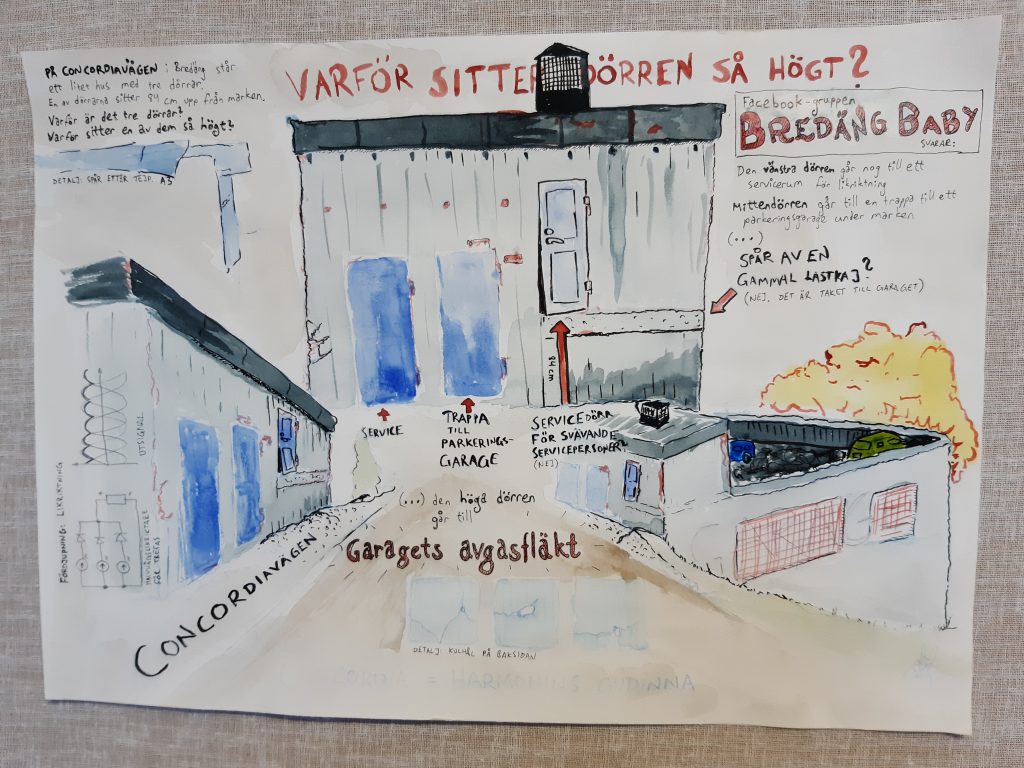 VARFÖR SITTER DÖRREN SÅ HÖGT?
PÅ CONCORDIAVÄGEN i Bredäng står
ett litet hus med tre dörrar.
En av dörrarna sitter 84 cm upp från marken.
Varför är det tre dörrar?
Varför sitter en av dem så högt?
DETALJ: SPÅR EFTER TEJP. A5
Facebook-gruppen
BREDÄNG BABY
SVARAR:
Den vänstra dörren går nog till ett
servicerum för likriktning
Mittendörren går till en trappa till ett
parkeringsgarage under marken
(...)
SPÅR AV EN
GAMMAL LASTKAJ?
(NEJ, DET ÄR TAKET TILL GARAGET)
84 cm
SERVICE
TRAPPA
TILL
PARKERINGS-
GARAGE
SERVICEDÖRR
FÖR SVÄVANDE
SERVICEPERSONER?
(NEJ)
(...) den höga dörren
går till
Garagets avgasfläkt
FÖRDJUPNING: LIKRIKTNING
UTSIGNAL
FÖR TREFAS
CONCORDIAVÄGEN
DETALJ: KULHÅL PÅ BAKSIDAN
= HARMONINS GUDINNA